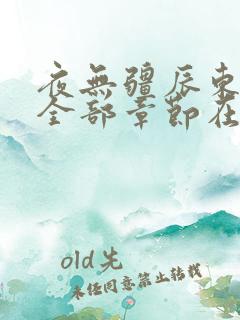 夜無疆辰東
全部章節在
old先
未经同意禁止转载